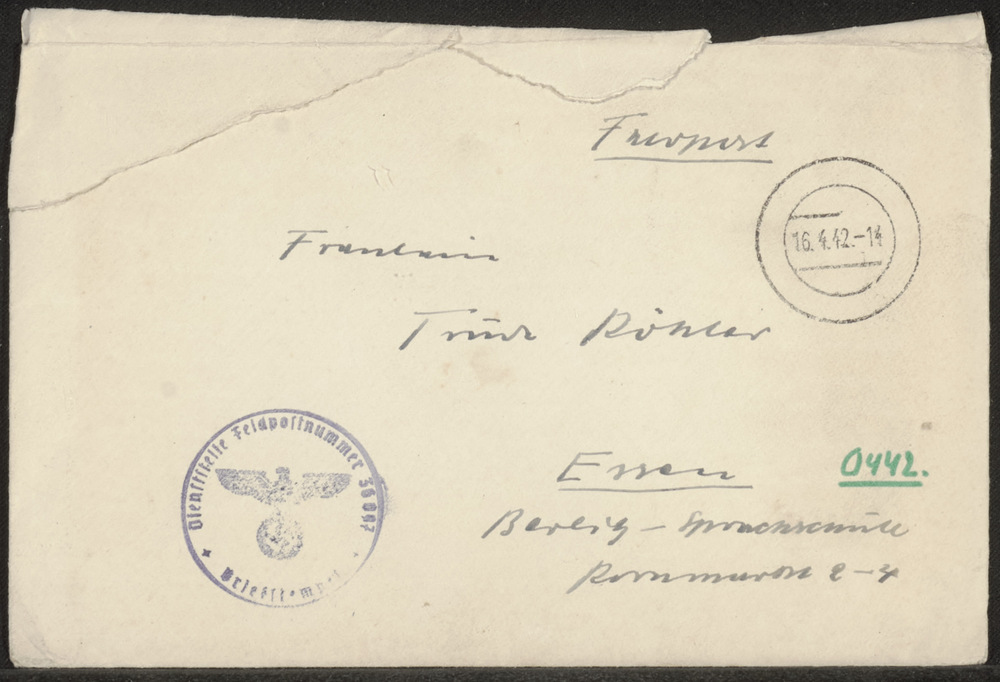 Feldpost
16.4.42.-14
Fräulein
Trude Köhler
Essen
0442.
Berlitz - Sprachschule
Kornmarkt 2-4
Dienststelle Feldpostnummer
Briefstempel